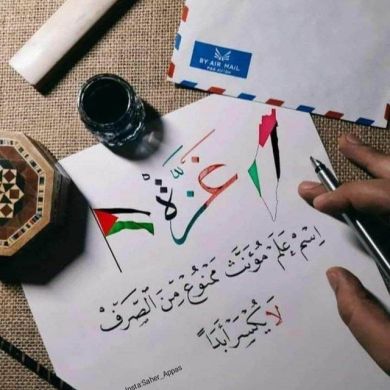 BY AIR MAIL
PAR AVION
غَزَّةُ
اِسْمُ عَلَم مُؤَنَّث مَمْنُوعٌ مِنَ الصَّرفْ
لَا يُكْسَرُ أَبَداً
Insta:Saher_Appas